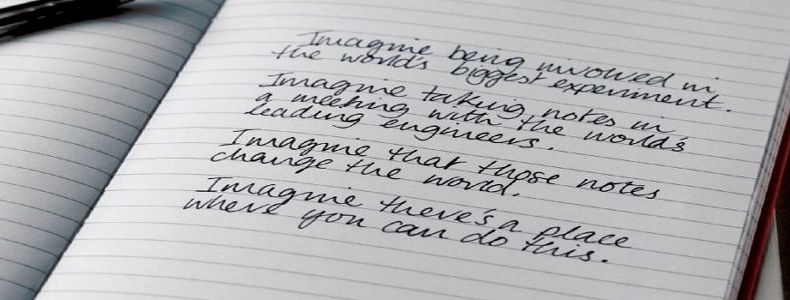 Imagine being involved in
the world's biggest experiment.
Imagine taking notes in
a meeting with the world's
leading engineers.
Imagine that those notes
change the world.
Imagine there's a place
where you can do this.